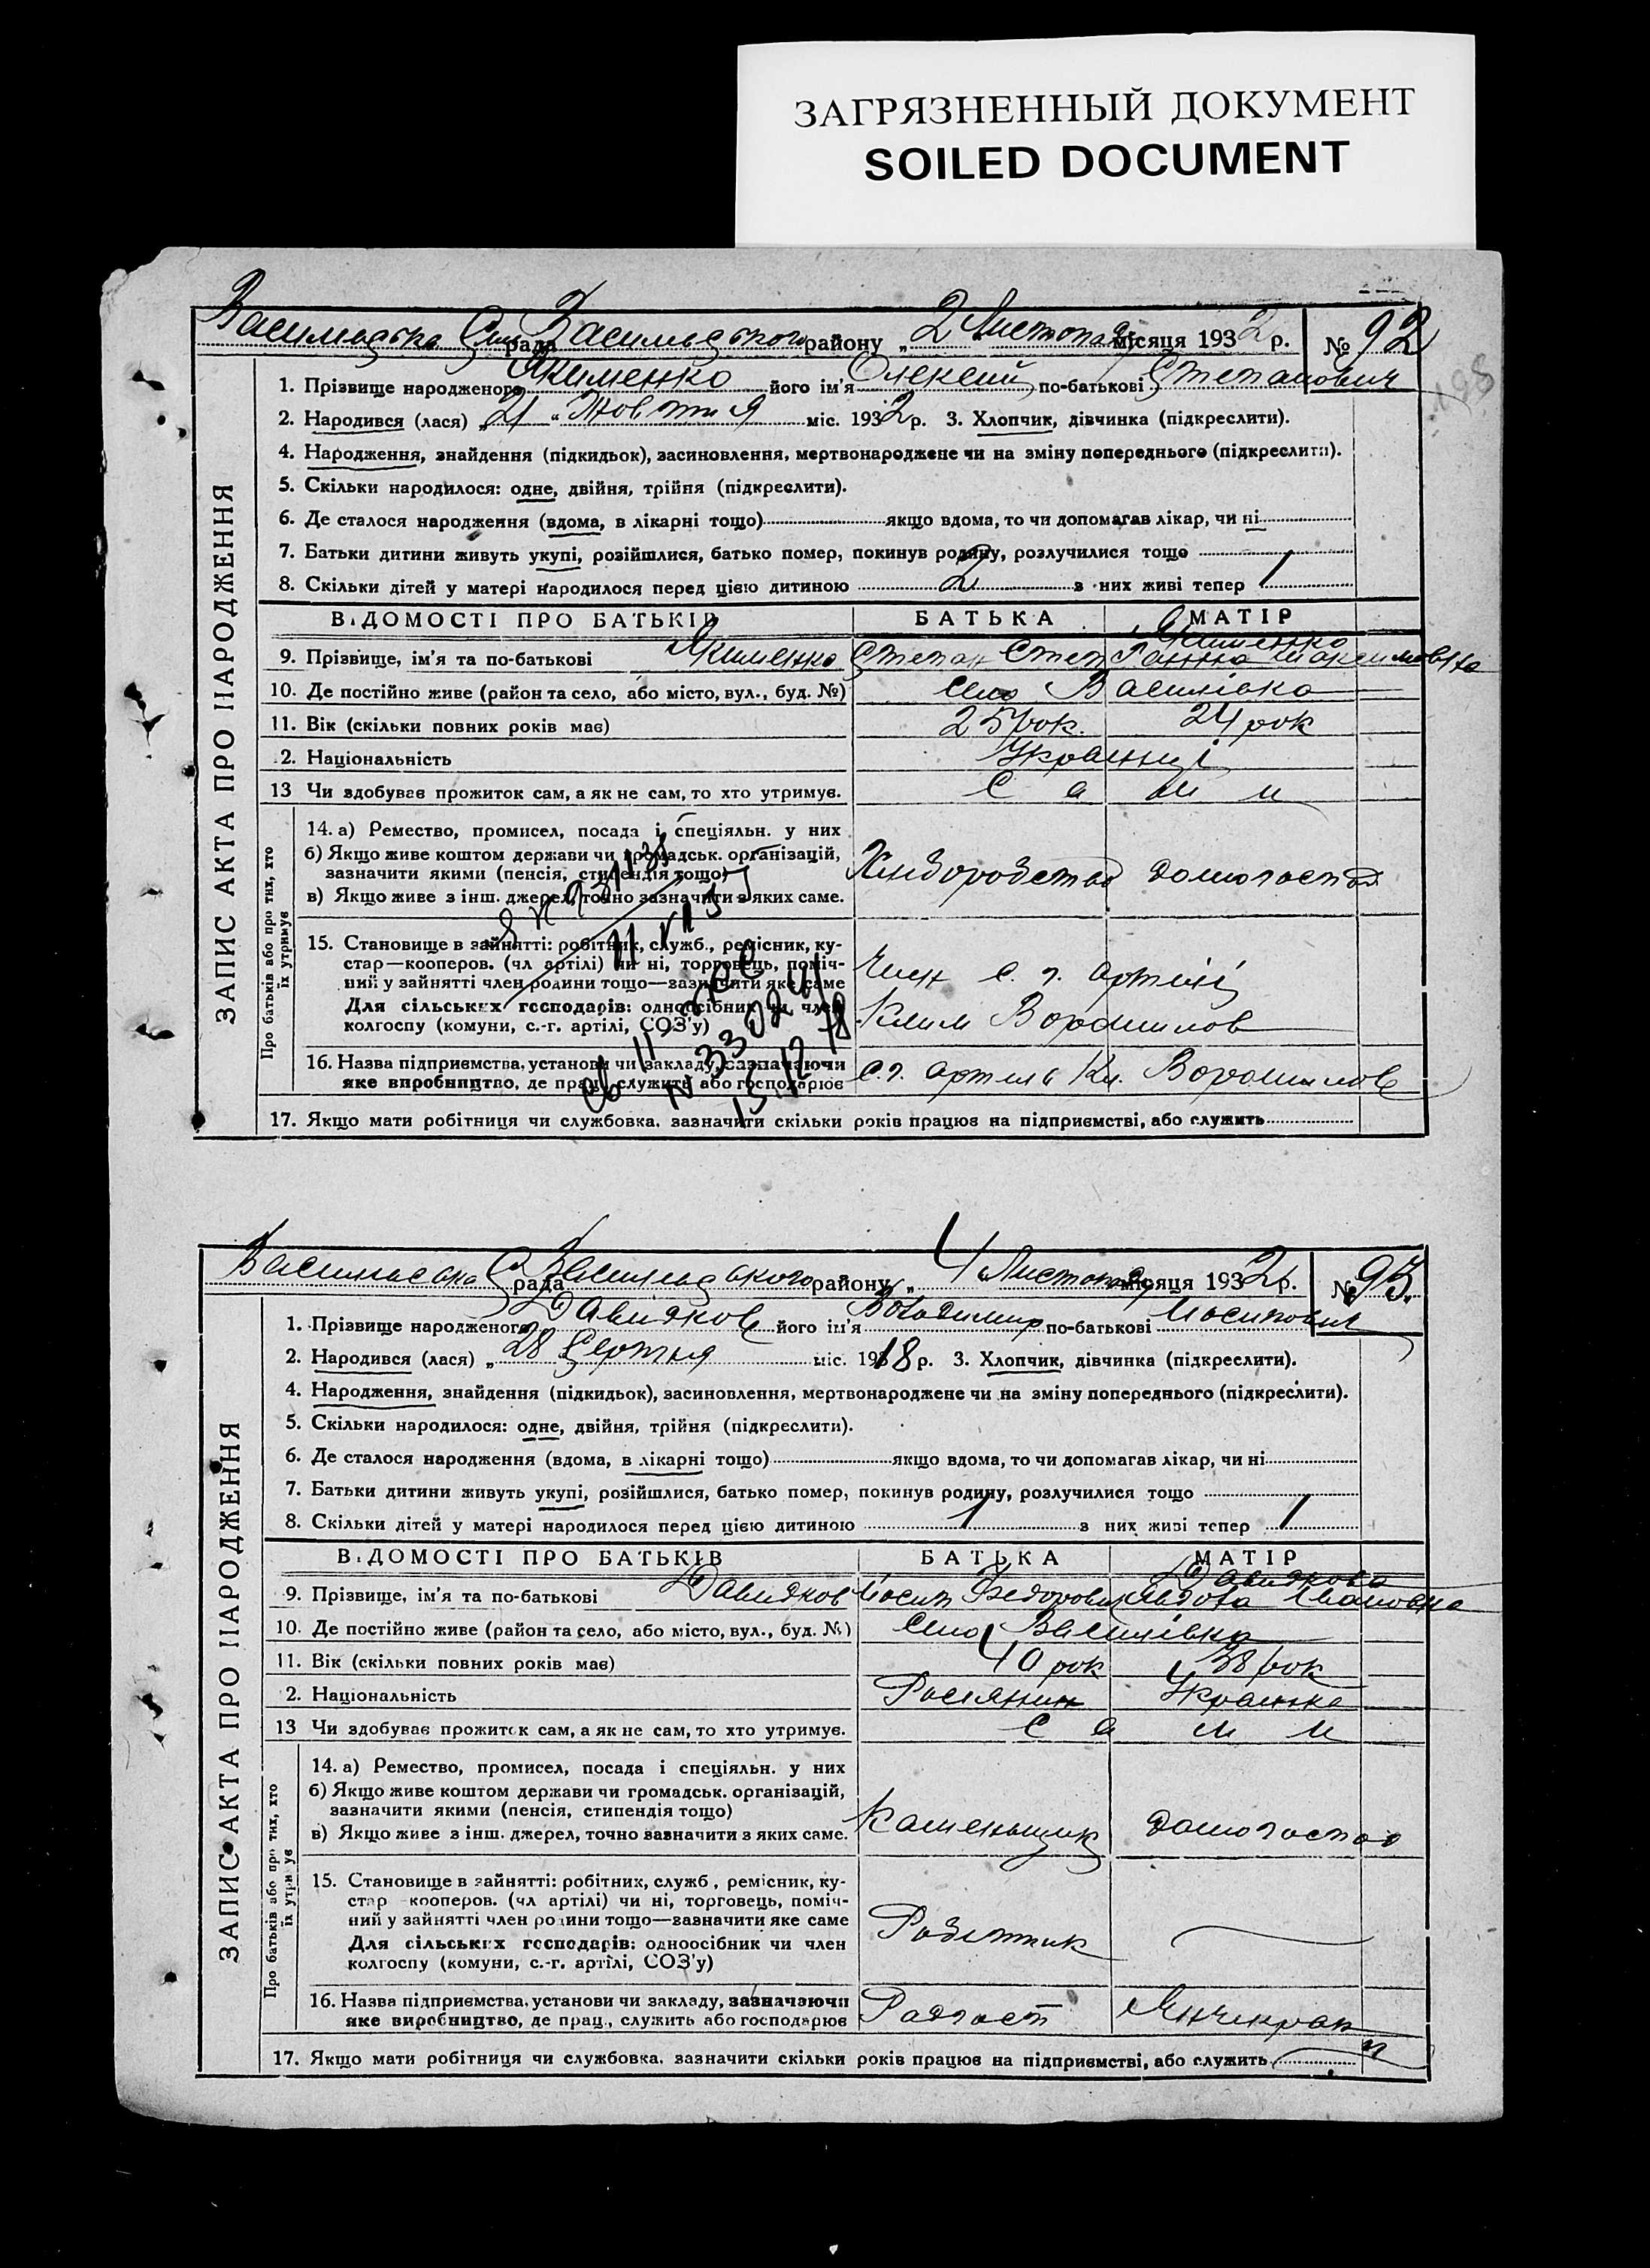 ЗАГРЯЗНЕННЫЙ ДОКУМЕНТ
SOILED DOCUMENT
Василівська Сіль рада Василівського району „2 Листопада місяця 1932 р. № 92
198
ЗАПИС АКТА ПРО НАРОДЖЕННЯ
1. Прізвище народженого Якименко його ім'я Олексій по-батькові Степанович
2. Народився (лася) „21 “ Жовтня міс. 1932 р. 3. Хлопчик, дівчинка (підкреслити).
4. Народження, знайдення (підкидьок), засиновлення, мертвонароджене чи на зміну попереднього (підкреслити).
5. Скільки народилося: одне, двійня, трійня (підкреслити).
6. Де сталося народження (вдома, в лікарні тощо) якщо вдома, то чи допомагав лікар, чи ні
7. Батьки дитини живуть укупі, розійшлися, батько помер, покинув родину, розлучилися тощо
8. Скільки дітей у матері народилося перед цією дитиною 2 з них живі тепер 1
ВІДОМОСТІ ПРО БАТЬКІВ БАТЬКА МАТІР
9. Прізвище, ім'я та по-батькові Якименко Степан Степ Якименко Ганна Максимовна
10. Де постійно живе (район та село, або місто, вул., буд. №) село Василівка
11. Вік (скільки повних років має) 25 рок. 24 рок
2. Національність Українці
13 Чи здобував прожиток сам, а як не сам, то хто утримує. С а м и
Про батьків або про тих, хто їх утримує
14. а) Ремество, промисел, посада і спеціяльн. у них
б) Якщо живе коштом держави чи громадськ. організацій,
зазначити якими (пенсія, стипендія тощо)
в) Якщо живе з інш. джерел, точно зазначити з яких саме.
Хліборобство домогоспод
15. Становище в зайнятті: робітник, служб., ремісник, ку-
стар—кооперов. (чл артілі) чи ні, торговець, поміч-
ний у зайнятті член родини тощо—зазначити яке саме
Для сільських господарів: одноосібник чи член
колгоспу (комуни, с.-г. артілі, СОЗ'у)
Член с. г. артілі
Клим Ворошилов
16. Назва підприємства, установи чи закладу, зазначаючи
яке виробництво, де прац., служить або господарює
с. г. артіль Кл. Ворошилов
15/12
17. Якщо мати робітниця чи службовка, зазначити скільки років працює на підприємстві, або служить
Василівська С рада Василівського району „ 4 Листопада місяця 1932 р. № 93.
ЗАПИС АКТА ПРО НАРОДЖЕННЯ
1. Прізвище народженого Давидков його ім'я Володимир по-батькові Йосипович
2. Народився (лася) „28 Серпня міс. 1918 р. 3. Хлопчик, дівчинка (підкреслити).
4. Народження, знайдення (підкидьок), засиновлення, мертвонароджене чи на зміну попереднього (підкреслити).
5. Скільки народилося: одне, двійня, трійня (підкреслити).
6. Де сталося народження (вдома, в лікарні тощо) якщо вдома, то чи допомагав лікар, чи ні
7. Батьки дитини живуть укупі, розійшлися, батько помер, покинув родину, розлучилися тощо
8. Скільки дітей у матері народилося перед цією дитиною 1 з них живі тепер 1
ВІДОМОСТІ ПРО БАТЬКІВ БАТЬКА МАТІР
9. Прізвище, ім'я та по-батькові Давидков Йосип Федорович Давидкова Явдоха Івановна
10. Де постійно живе (район та село, або місто, вул., буд. №) село Василівка
11. Вік (скільки повних років має) 40 рок 38 рок
2. Національність Росіянин Українка
13 Чи здобував прожиток сам, а як не сам, то хто утримує. С а м и
Про батьків або про тих, хто їх утримує
14. а) Ремество, промисел, посада і спеціяльн. у них
б) Якщо живе коштом держави чи громадськ. організацій,
зазначити якими (пенсія, стипендія тощо)
в) Якщо живе з інш. джерел, точно зазначити з яких саме.
Каменьщик домогоспод
15. Становище в зайнятті: робітник, служб., ремісник, ку-
стар кооперов. (чл артілі) чи ні, торговець, поміч-
ний у зайнятті член родини тощо—зазначити яке саме
Для сільських господарів: одноосібник чи член
колгоспу (комуни, с.-г. артілі, СОЗ'у)
Робітник
16. Назва підприємства, установи чи закладу, зазначаючи
яке виробництво, де прац., служить або господарює
Радгосп Янчекрак
17. Якщо мати робітниця чи службовка, зазначити скільки років працює на підприємстві, або служить